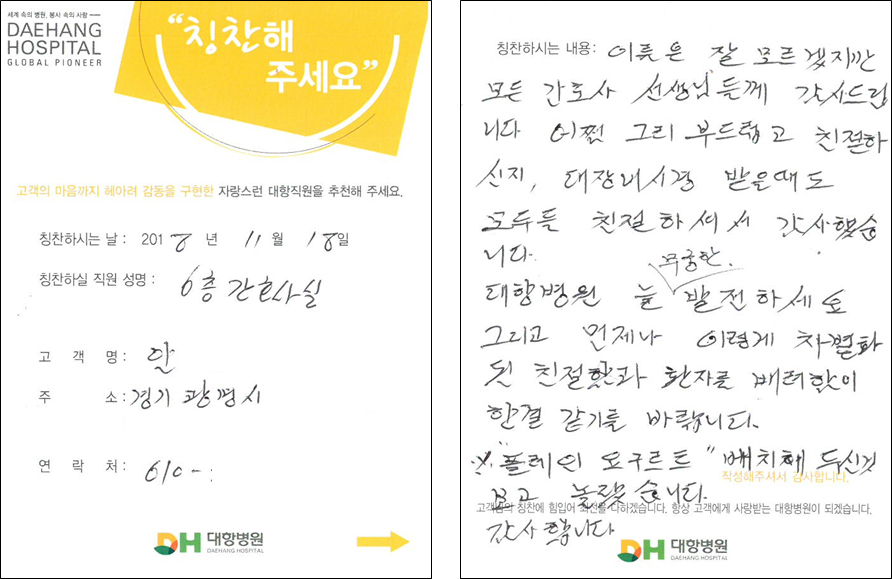 세계 속의 병원, 봉사 속의 사랑
DAEHANG
HOSPITAL
GLOBAL PIONEER
“칭찬해
주세요”
고객의 마음까지 헤아려 감동을 구현한 자랑스런 대항직원을 추천해 주세요.
칭찬하시는 날 : 2018 년 11 월 18일
칭찬하실 직원 성명 : 6층 간호사실
고 객 명 : 안
주 소 : 경기 광명시
연 락 처 : 010-
DH 대항병원
DAEHANG HOSPITAL
칭찬하시는 내용: 이름은 잘 모르겠지만
모든 간호사 선생님들께 감사드립
니다 어쩜 그리 부드럽고 친절하
신지, 대장내시경 받을때도
모두들 친절하셔서 감사했습
니다. 무궁한.
대항병원 늘 발전하세요
그리고 언제나 이렇게 차별화
된 친절함과 환자를 배려함이
한결 같기를 바랍니다.
※ "플레인 요구르트" 배치해 두신것
작성해주셔서 감사합니다.
보고 놀랐습니다.
고객님의 칭찬에 힘입어 최선을 다하겠습니다. 항상 고객에게 사랑받는 대항병원이 되겠습니다.
감사합니다
DH 대항병원
DAEHANG HOSPITAL